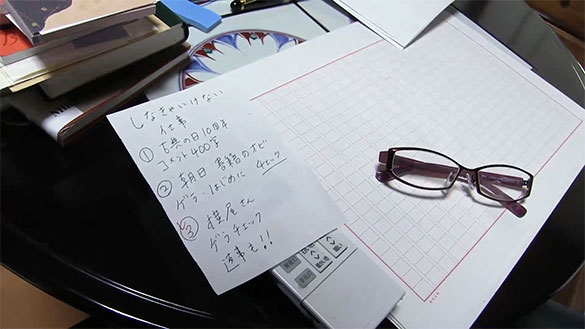 しなきゃいけない
仕事
① 古典の日10周年
コメント400字
② 朝日 書籍のオビ
ゲラ、はじめに チェック
③ 横尾さん
ゲラチェック
返事も!!